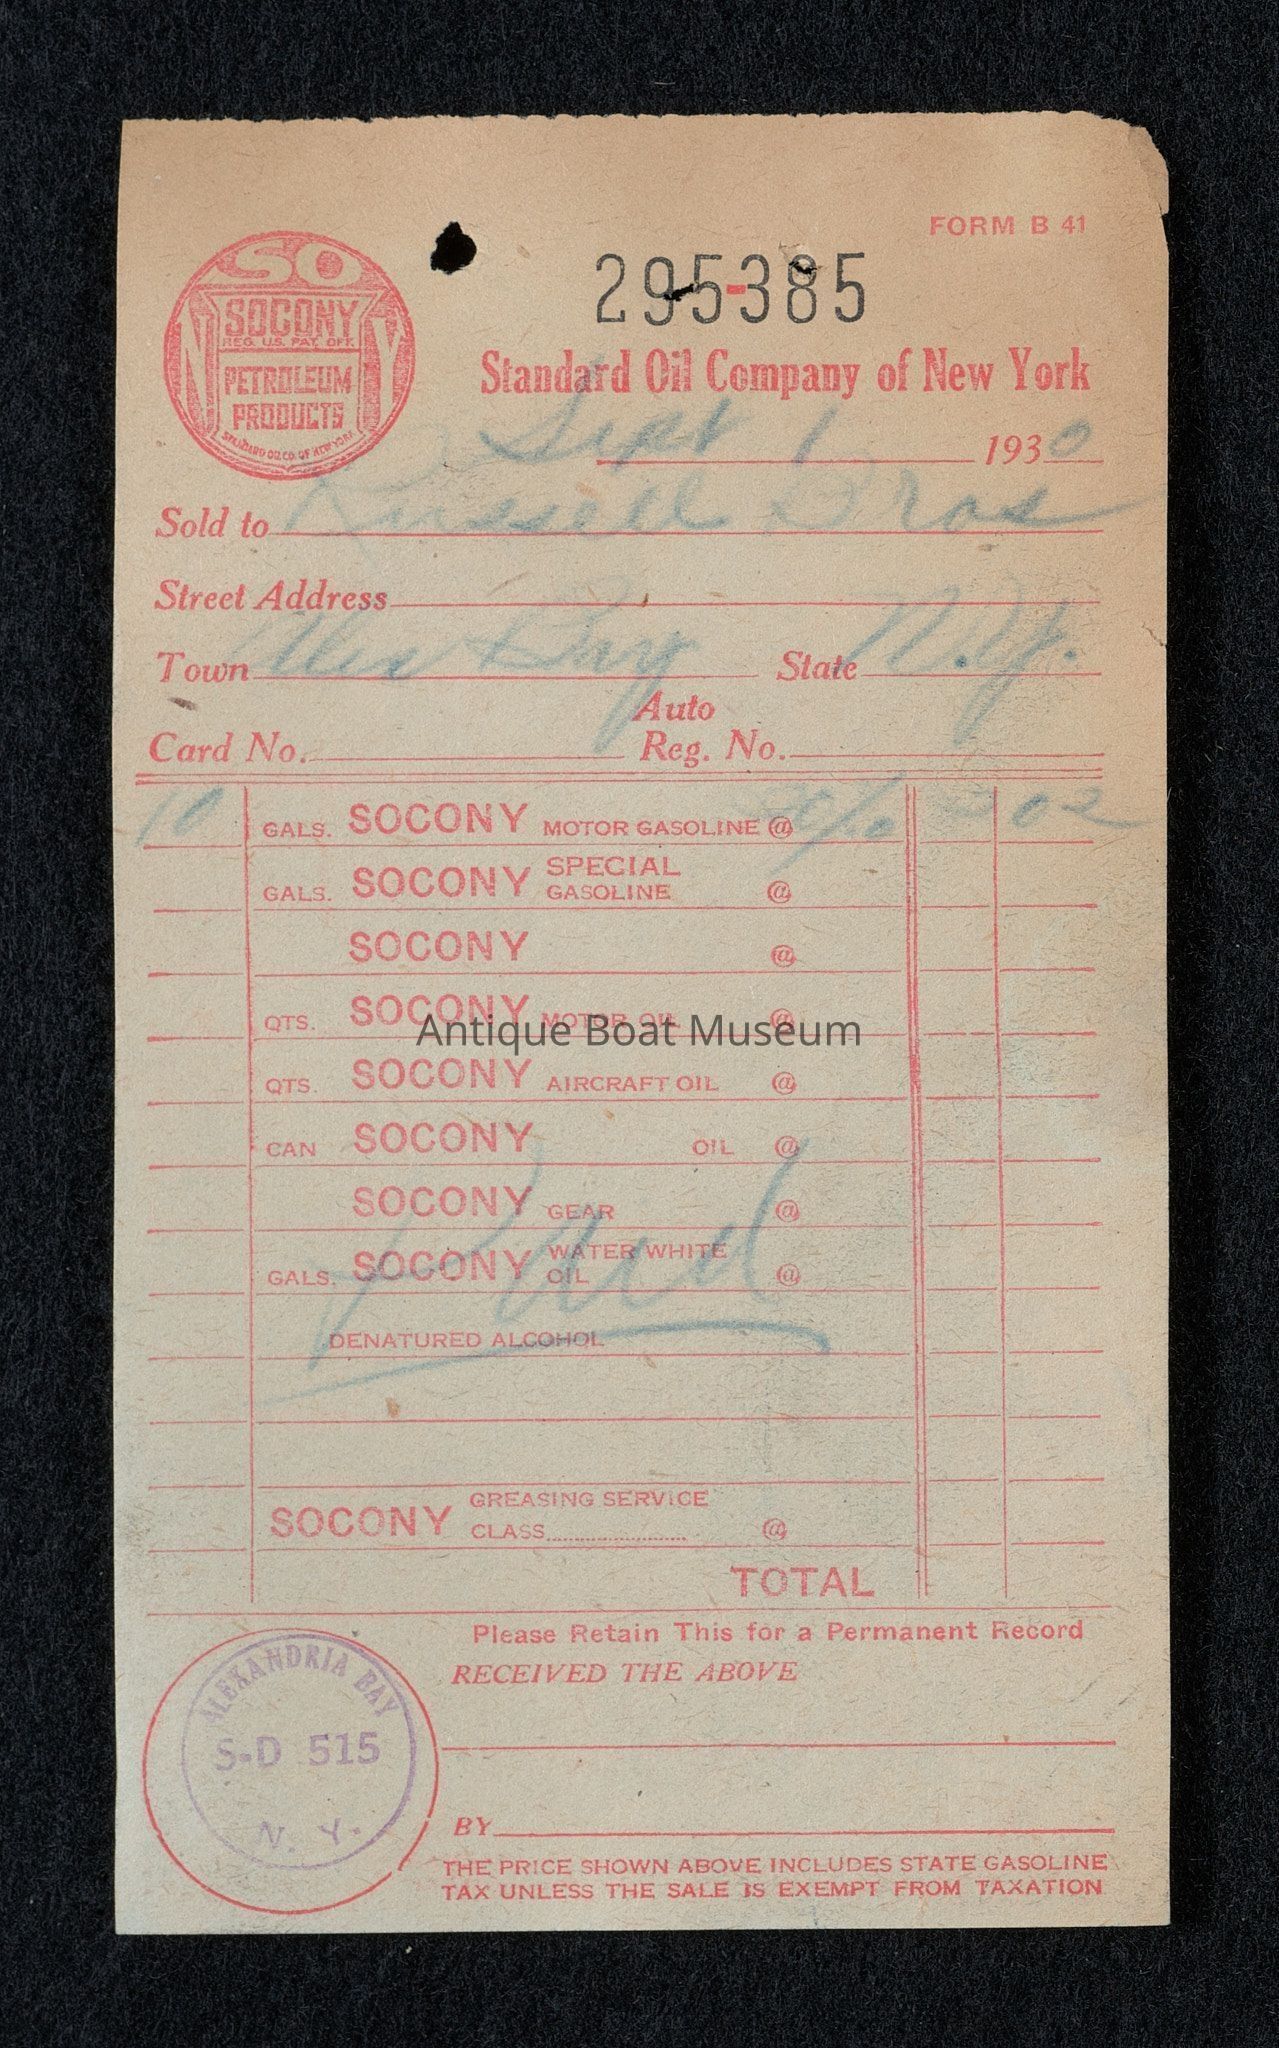 FORM B 41
SO
NY
SOCONY
REG. U.S. PAT. OFF.
PETROLEUM
PRODUCTS
STANDARD OIL CO. OF NEW YORK
295-385
Standard Oil Company of New York
Sept 1 1930
Sold to Russell Bros
Street Address
Town Alex Bay State N.Y.
Auto
Card No. Reg. No.
10 GALS. SOCONY MOTOR GASOLINE @ 2 02
SPECIAL
GALS. SOCONY GASOLINE @
SOCONY @
QTS. SOCONY MOTOR OIL @
Antique Boat Museum
QTS. SOCONY AIRCRAFT OIL @
CAN SOCONY OIL @
SOCONY GEAR @
GALS. SOCONY WATER WHITE OIL @
Paid
DENATURED ALCOHOL
GREASING SERVICE
SOCONY CLASS @
TOTAL
Please Retain This for a Permanent Record
RECEIVED THE ABOVE
ALEXANDRIA BAY
S-D 515
N. Y.
BY
THE PRICE SHOWN ABOVE INCLUDES STATE GASOLINE
TAX UNLESS THE SALE IS EXEMPT FROM TAXATION